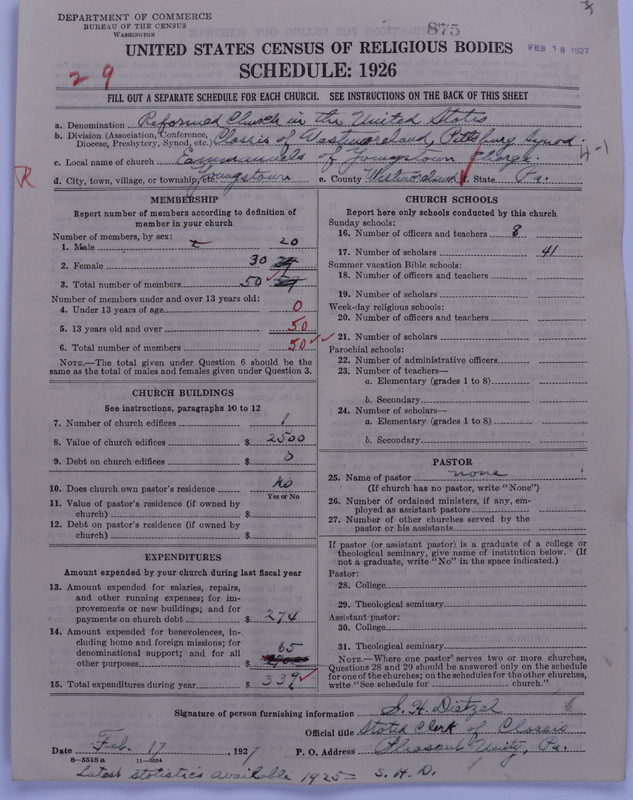 DEPARTMENT OF COMMERCE
BUREAU OF THE CENSUS
WASHINGTON
875
FEB 18 1927
UNITED STATES CENSUS OF RELIGIOUS BODIES
SCHEDULE: 1926
29
FILL OUT A SEPARATE SCHEDULE FOR EACH CHURCH. SEE INSTRUCTIONS ON THE BACK OF THIS SHEET
a. Denomination Reformed Church in the United States
b. Division (Association, Conference, Diocese, Presbytery, Synod, etc.) Classis of Westmoreland, Pittsburg Synod.
4-1
c. Local name of church Emmanuels of Youngstown Charge.
R
d. City, town, village, or township, etc. Youngstown e. County Westmoreland f. State Pa.
MEMBERSHIP
Report number of members according to definition of member in your church
Number of members, by sex:
1. Male 20
2. Female 30
3. Total number of members 50
Number of members under and over 13 years old:
4. Under 13 years of age 0
5. 13 years old and over 50
6. Total number of members 50
NOTE.—The total given under Question 6 should be the same as the total of males and females given under Question 3.
CHURCH BUILDINGS
See instructions, paragraphs 10 to 12
7. Number of church edifices 1
8. Value of church edifices $ 2500
9. Debt on church edifices $ 0
10. Does church own pastor's residence No
Yes or No
11. Value of pastor's residence (if owned by church) $
12. Debt on pastor's residence (if owned by church) $
EXPENDITURES
Amount expended by your church during last fiscal year
13. Amount expended for salaries, repairs, and other running expenses; for improvements or new buildings; and for payments on church debt $ 274
14. Amount expended for benevolences, including home and foreign missions; for denominational support; and for all other purposes $ 65
15. Total expenditures during year $ 339
CHURCH SCHOOLS
Report here only schools conducted by this church
Sunday schools:
16. Number of officers and teachers 8
17. Number of scholars 41
Summer vacation Bible schools:
18. Number of officers and teachers
19. Number of scholars
Week-day religious schools:
20. Number of officers and teachers
21. Number of scholars
Parochial schools:
22. Number of administrative officers
23. Number of teachers—
a. Elementary (grades 1 to 8)
b. Secondary
24. Number of scholars—
a. Elementary (grades 1 to 8)
b. Secondary
PASTOR
25. Name of pastor none
(If church has no pastor, write "None")
26. Number of ordained ministers, if any, employed as assistant pastors
27. Number of other churches served by the pastor or his assistants
If pastor (or assistant pastor) is a graduate of a college or theological seminary, give name of institution below. (If not a graduate, write "No" in the space indicated.)
Pastor:
28. College
29. Theological seminary
Assistant pastor:
30. College
31. Theological seminary
NOTE.—Where one pastor serves two or more churches, Questions 28 and 29 should be answered only on the schedule for one of the churches; on the schedules for the other churches, write "See schedule for church."
Signature of person furnishing information S. H. Dietzel
Official title Stated Clerk of Classis
Date Feb. 17, 1927 P. O. Address Pleasant Unity, Pa.
8—5518 a 11—9664
Latest statistics available 1925— S. H. D.